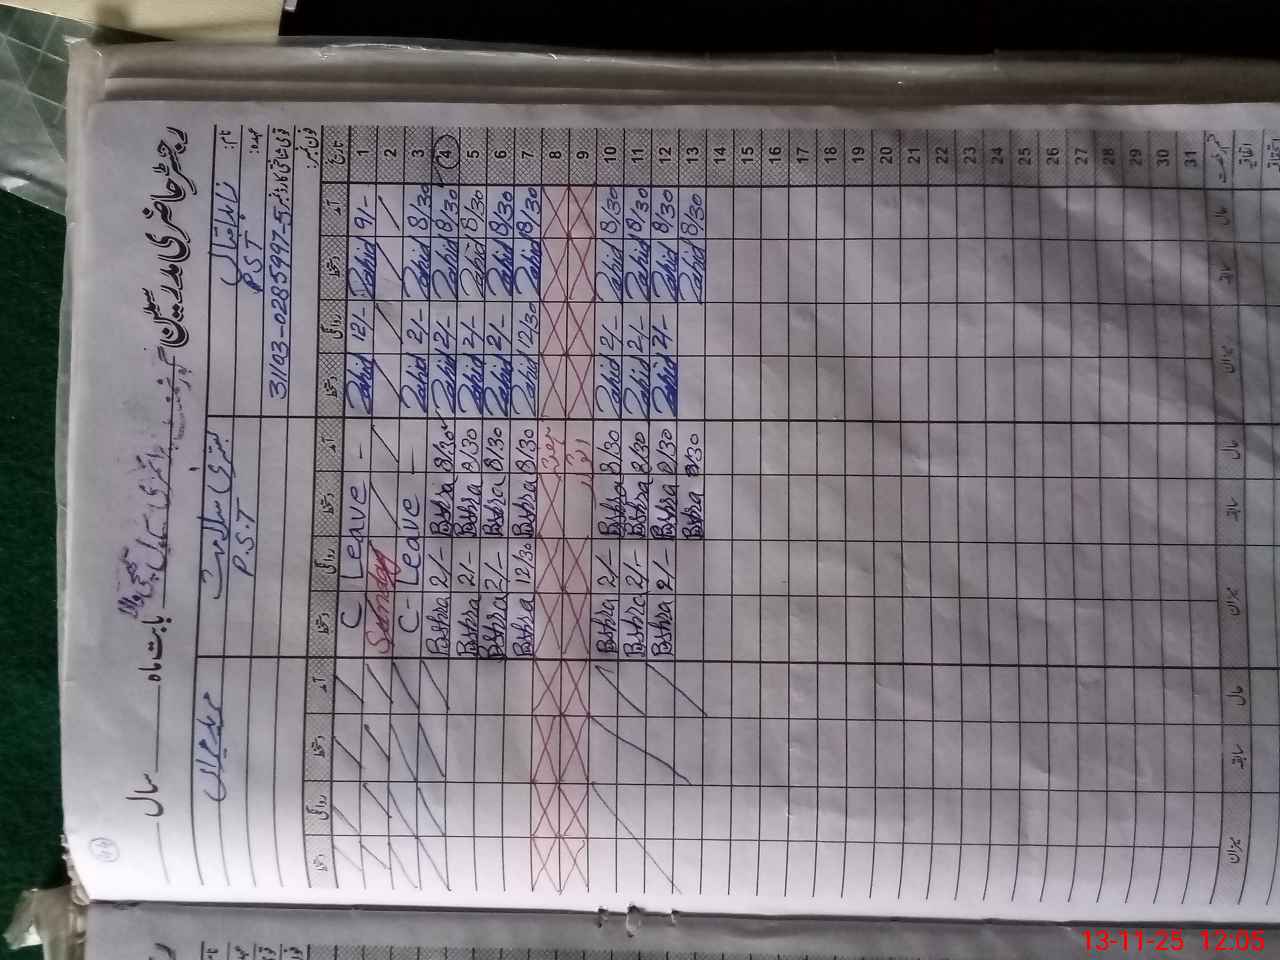 رجسٹر حاضری مدرسین
بابت ماہ سال
نام: زاہد اقبال بشریٰ سلامت
عہدہ: P.S.T P.S.T
قومی شناختی کارڈ نمبر 31103-0285997-5
فون نمبر:
تاریخ آمد دستخط روانگی دستخط آمد دستخط روانگی دستخط آمد دستخط روانگی دستخط
1 9/- Zahid 12/- Zahid - C Leave
2 Sunday
3 8/30 Zahid 2/- Zahid - C- Leave
4 8/30 Zahid 2/- Zahid 8/30 Bshra 2/- Bshra
5 8/30 Zahid 2/- Zahid 8/30 Bshra 2/- Bshra
6 8/30 Zahid 2/- Zahid 8/30 Bshra 2/- Bshra
7 8/30 Zahid 12/30 Zahid 8/30 Bshra 12/30 Bshra
8
9 اتوار
10 8/30 Zahid 2/- Zahid 8/30 Bshra 2/- Bshra
11 8/30 Zahid 2/- Zahid 8/30 Bshra 2/- Bshra
12 8/30 Zahid 2/- Zahid 8/30 Bshra 2/- Bshra
13 8/30 Zahid 8/30 Bshra
14
15
16
17
18
19
20
21
22
23
24
25
26
27
28
29
30
31
اتفاقیہ حال سابقہ میزان حال سابقہ میزان حال سابقہ میزان
13-11-25 12:05